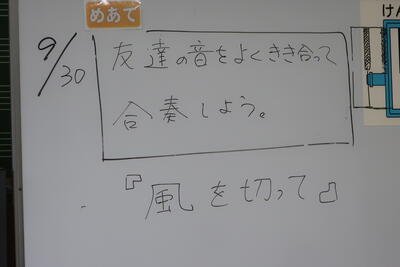 めあて
9/30
友達の音をよくきき合って
合奏しよう。
『風を切って』
けん